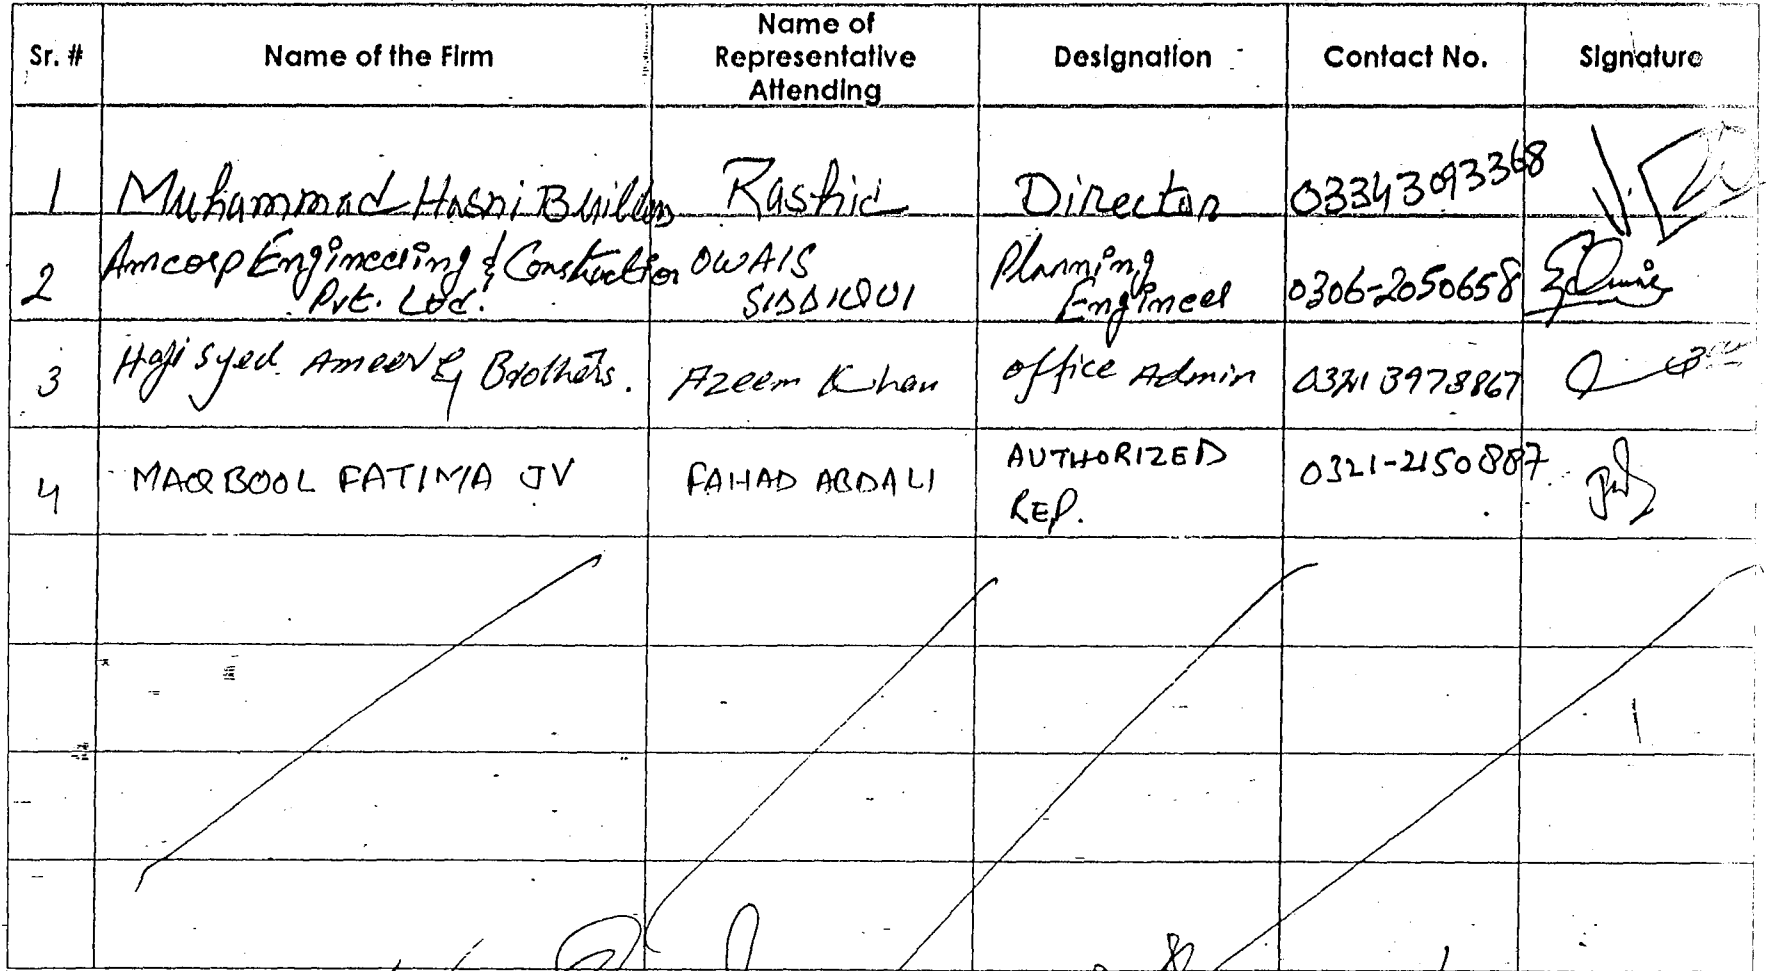 Sr. # Name of the Firm Name of Representative Attending Designation Contact No. Signature
1 Muhammad Hasni Builders Rashid Director 03343093368
2 Amcorp Engineering & Construction Pvt. Ltd. OWAIS SIDDIQUI Planning Engineer 0306-2050658
3 Haji Syed Ameer & Brothers. Azeem Khan office Admin
4 MAQBOOL FATIMA JV FAHAD ABDALI AUTHORIZED REP. 0321-2150887